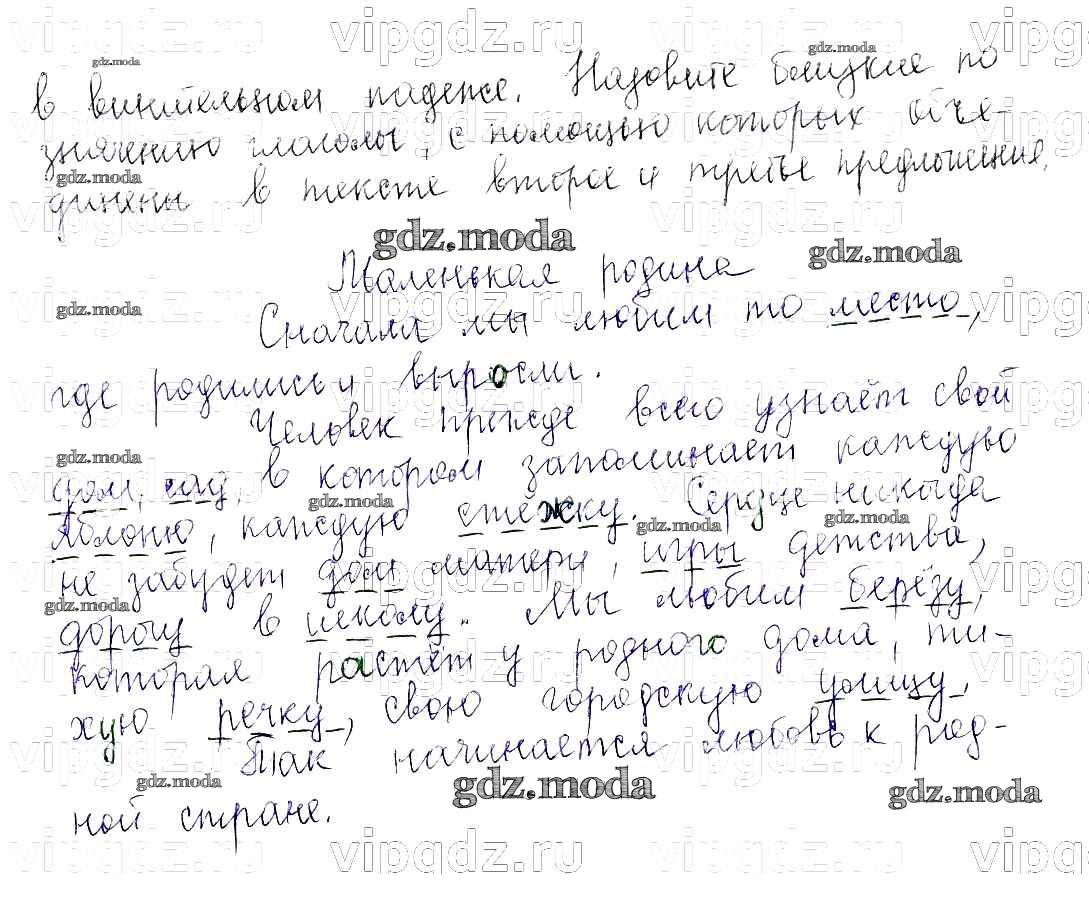 в винительном падеже. Назовите близкие по
значению глаголы, с помощью которых объе-
динены в тексте второе и третье предложение.
Маленькая родина
Сначала мы любим то место,
где родились и выросли.
Человек прежде всего узнаёт свой
дом, сад, в котором запоминает каждую
яблоню, каждую стёжку. Сердце никогда
не забудет дом матери, игры детства,
дорогу в школу. Мы любим берёзу,
которая растёт у родного дома, ти-
хую речку, свою городскую улицу.
Так начинается любовь к род-
ной стране.